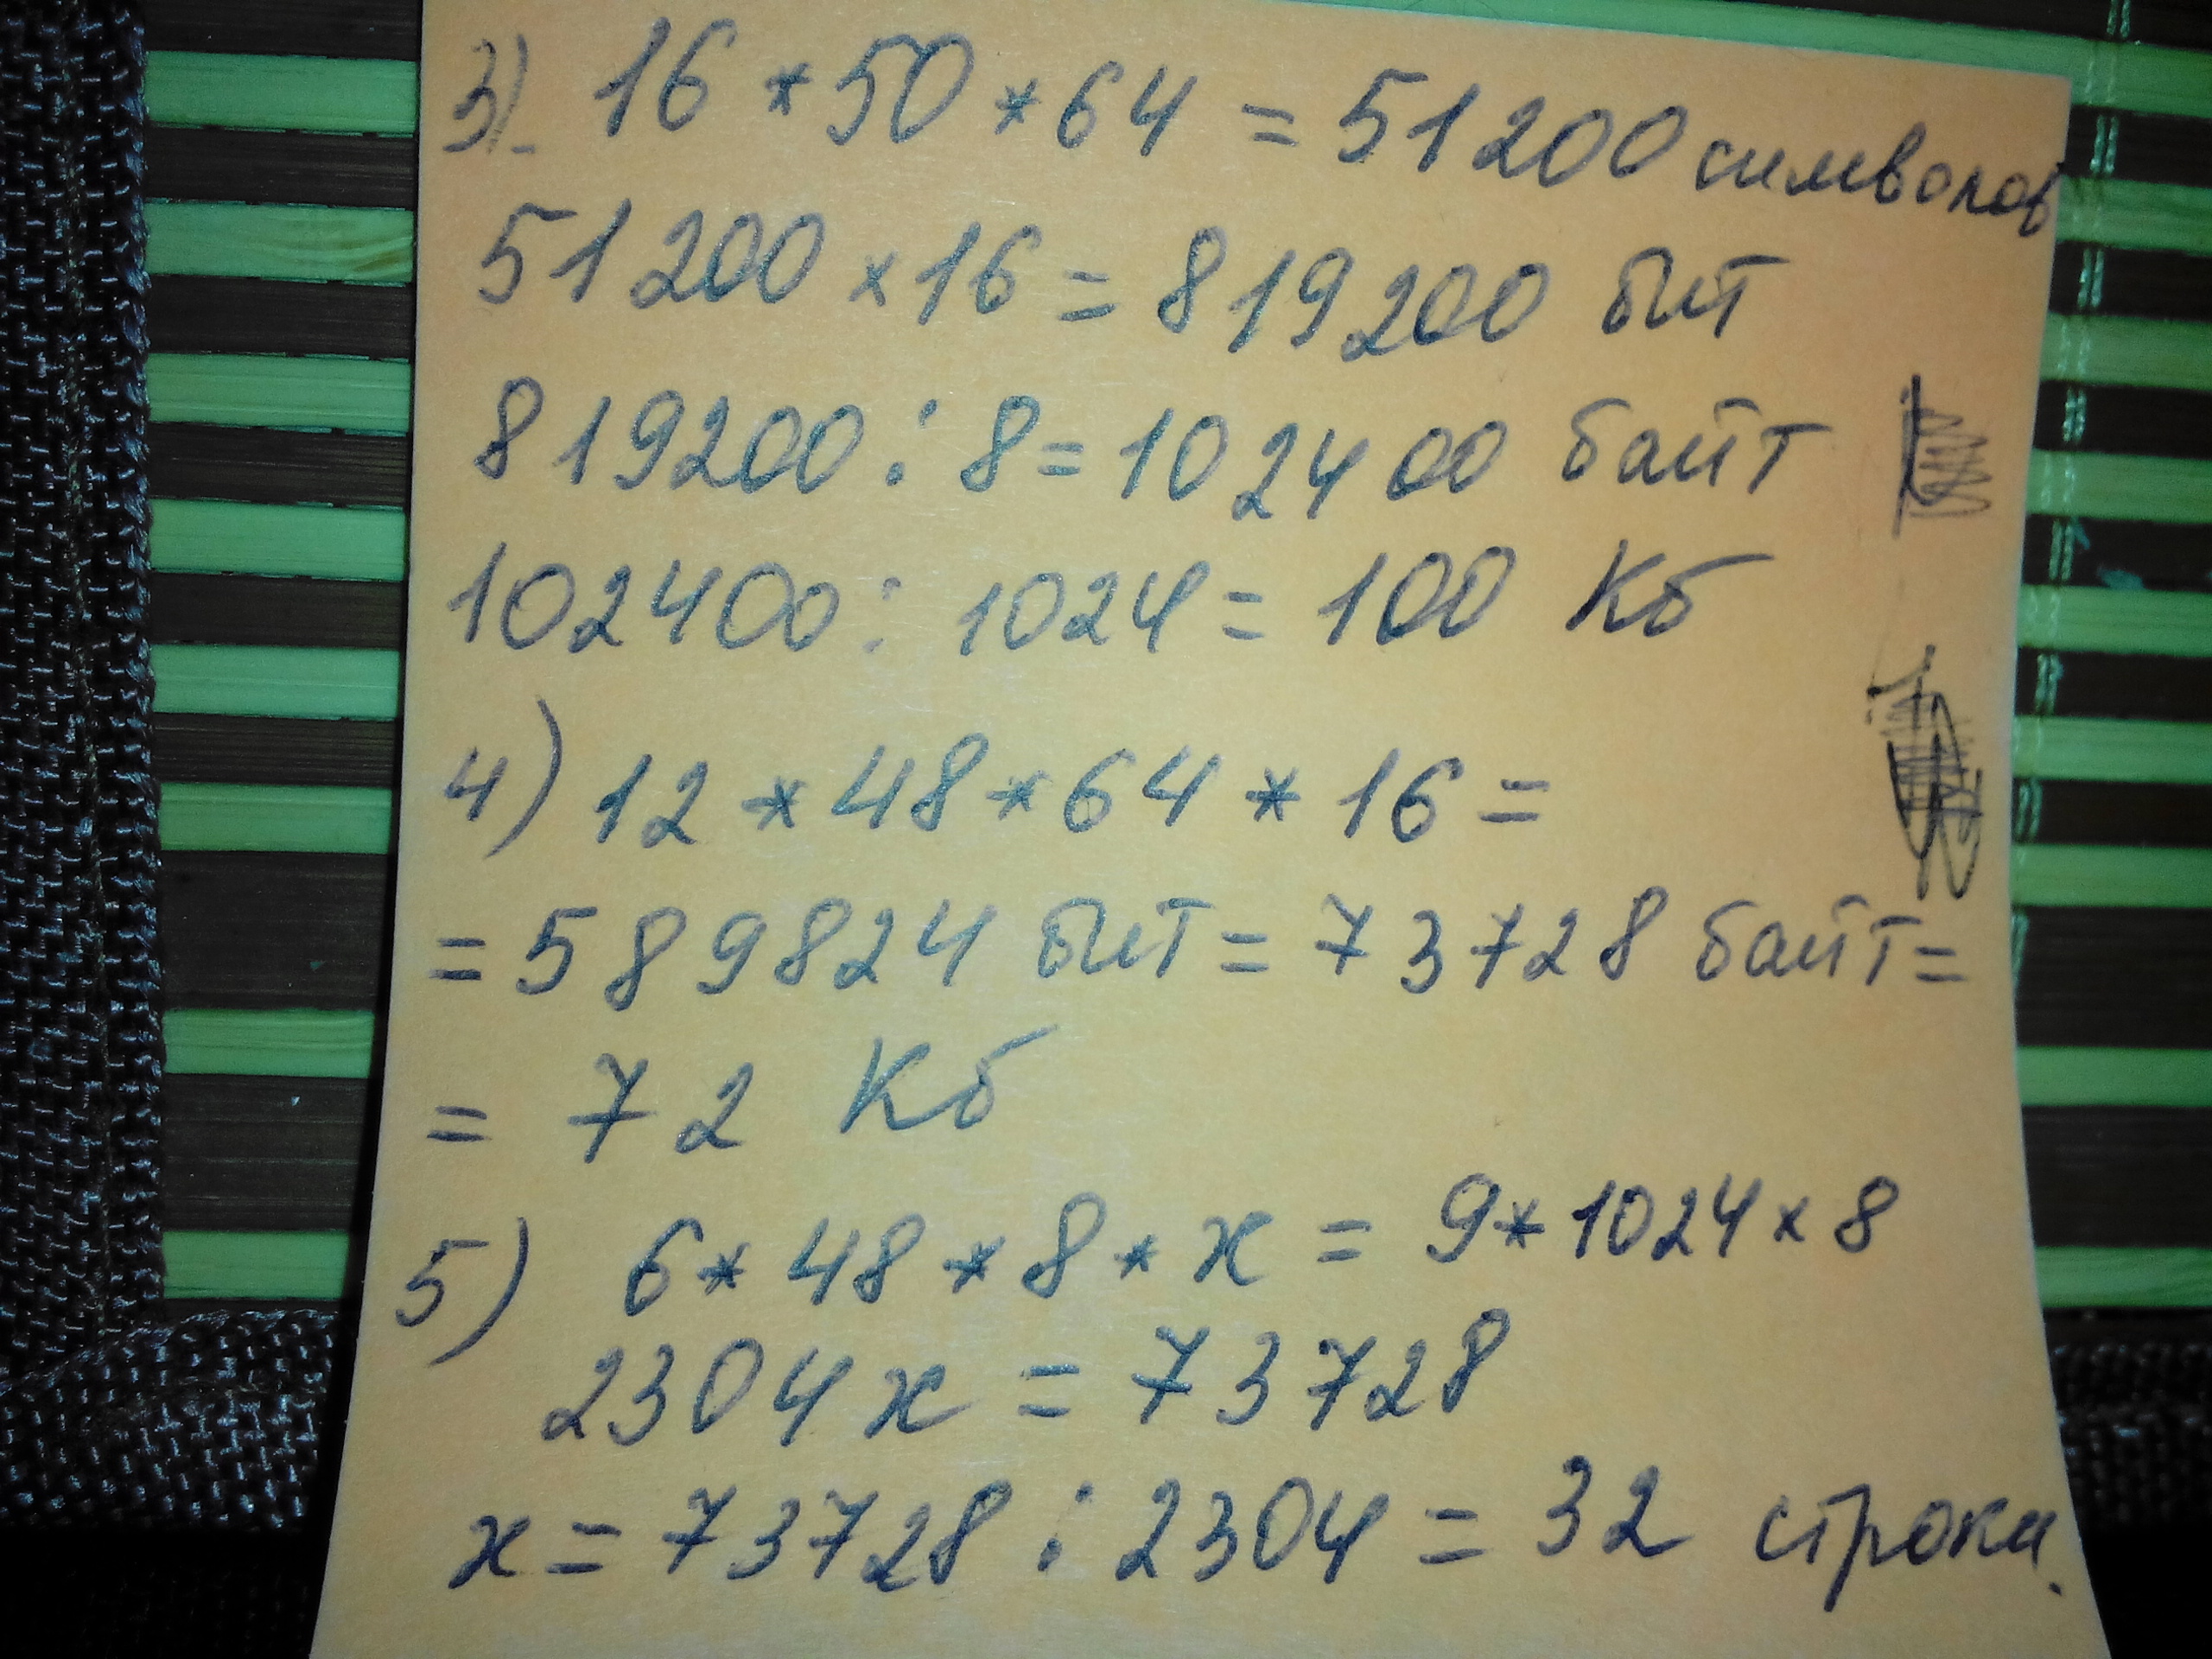 3). 16 * 50 * 64 = 51200 символов
51200 × 16 = 819200 бит
819200 : 8 = 102400 байт
102400 : 1024 = 100 Кб
4) 12 * 48 * 64 * 16 =
= 589824 бит = 73728 байт =
= 72 Кб
5) 6 * 48 * 8 * x = 9 * 1024 × 8
2304 x = 73728
x = 73728 : 2304 = 32 строки.